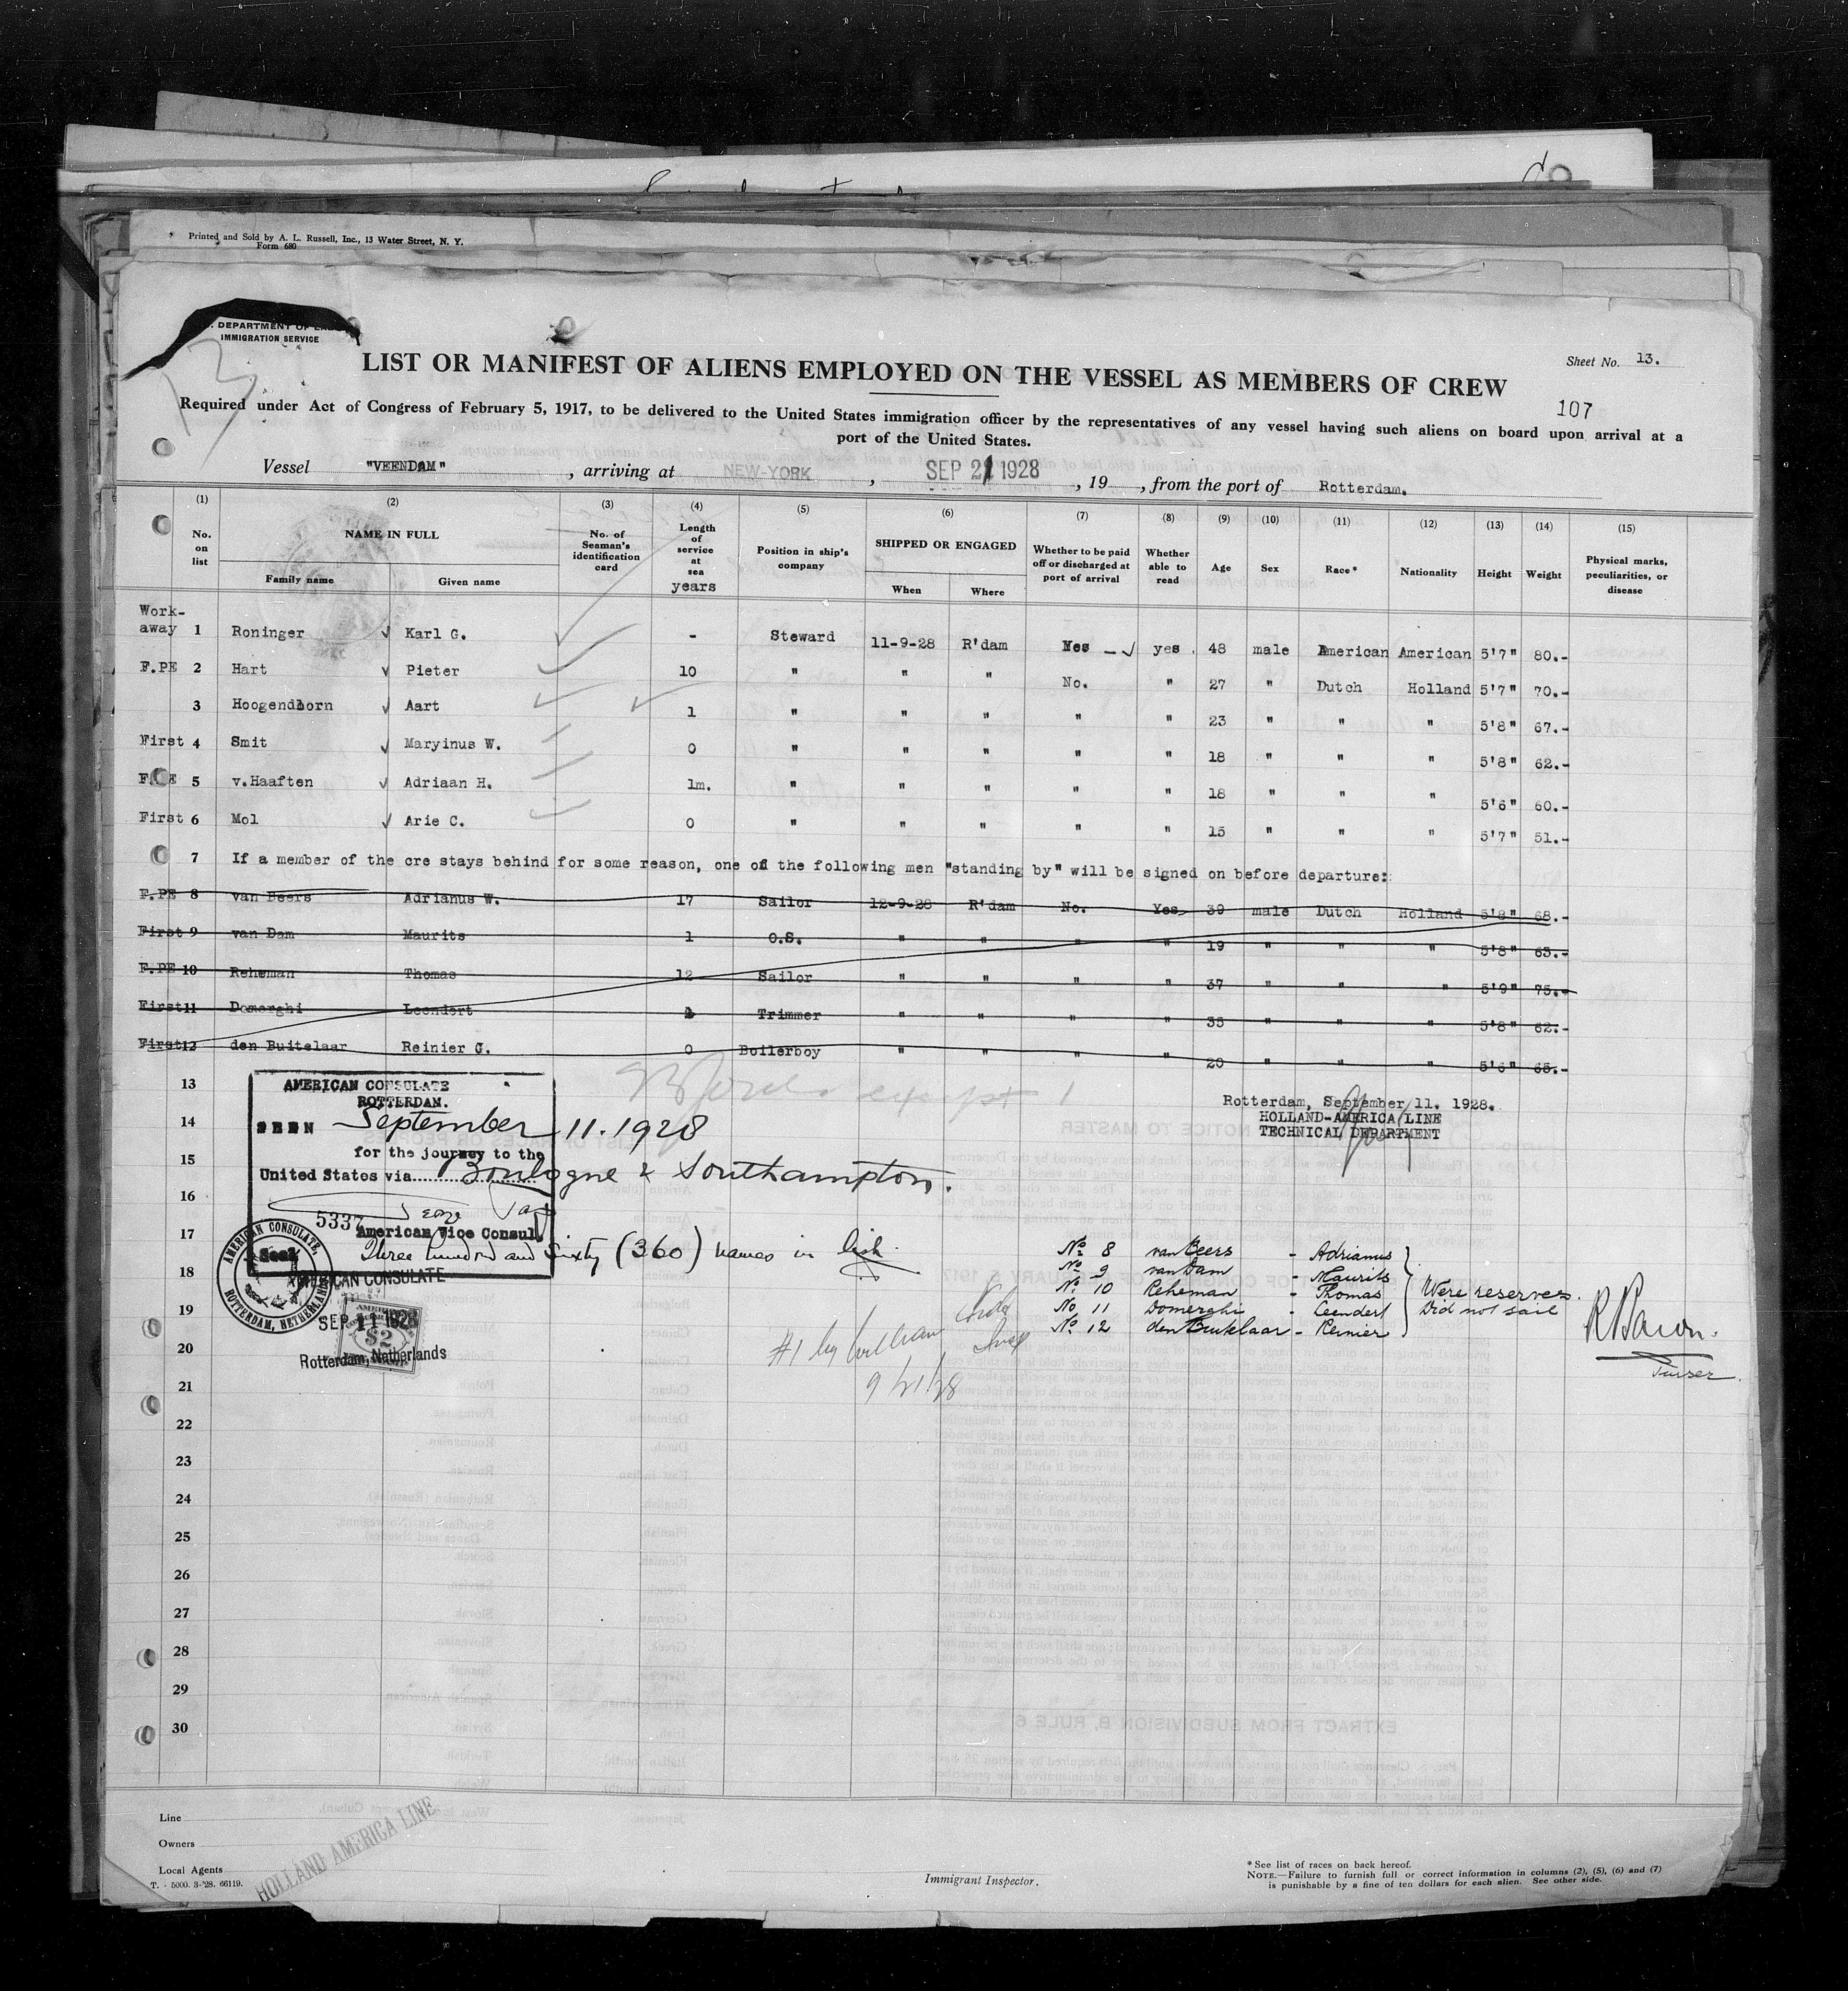 Printed and Sold by A. L. Russell, Inc., 13 Water Street, N. Y.
Form 680
DEPARTMENT OF
IMMIGRATION SERVICE
13
2
Sheet No. 13.
LIST OR MANIFEST OF ALIENS EMPLOYED ON THE VESSEL AS MEMBERS OF CREW
107
Required under Act of Congress of February 5, 1917, to be delivered to the United States immigration officer by the representatives of any vessel having such aliens on board upon arrival at a
port of the United States.
Vessel "VEENDAM", arriving at NEW-YORK, SEP 21 1928, 19, from the port of Rotterdam.
(1) (2) (3) (4) (5) (6) (7) (8) (9) (10) (11) (12) (13) (14) (15)
No. on list NAME IN FULL Family name Given name No. of Seaman's identification card Length of service at sea years Position in ship's company SHIPPED OR ENGAGED When Where Whether to be paid off or discharged at port of arrival Whether able to read Age Sex Race* Nationality Height Weight Physical marks, peculiarities, or disease
Work-away 1 Roninger Karl G. - Steward 11-9-28 R'dam Yes - yes 48 male American American 5'7" 80.-
F.PE 2 Hart Pieter 10 " " " No. " 27 " Dutch Holland 5'7" 70.-
3 Hoogendoorn Aart 1 " " " " " 23 " " " 5'8" 67.-
First 4 Smit Maryinus W. 0 " " " " " 18 " " " 5'8" 62.-
F.PE 5 v.Haaften Adriaan H. 1m. " " " " " 18 " " " 5'6" 60.-
First 6 Mol Arie C. 0 " " " " " 15 " " " 5'7" 51.-
7 If a member of the cre stays behind for some reason, one of the following men "standing by" will be signed on before departure:
F.PE 8 van Beers Adrianus W. 17 Sailor 12-9-28 R'dam No. Yes 39 male Dutch Holland 5'8" 68.-
First 9 van Dam Maurits 1 O.S. " " " " 19 " " " 5'8" 63.-
F.PE 10 Reheman Thomas 12 Sailor " " " " 37 " " " 5'9" 75.-
First 11 Domerghi Leendert Trimmer " " " " 35 " " " 5'8" 62.-
First 12 den Buitelaar Reinier G. 0 Boilerboy " " " " 20 " " " 5'6" 65.-
13
AMERICAN CONSULATE
ROTTERDAM.
Rotterdam, September 11. 1928.
HOLLAND-AMERICA LINE
TECHNICAL DEPARTMENT
14 SEEN September 11. 1928
for the journey to the
15
United States via Boulogne & Southampton.
16
5337
American Vice Consul.
17 Three hundred and sixty (360) names in list.
AMERICAN CONSULATE, ROTTERDAM, NETHERLANDS
Seal
18 AMERICAN CONSULATE
SEP 11 1928
AMERICAN $2
Rotterdam, Netherlands
No. 8 van Beers - Adrianus
No. 9 van Dam - Maurits
No. 10 Reheman - Thomas
No. 11 Domerghi - Leendert
No. 12 den Buitelaar - Reinier
Were reserves.
Did not sail
Purser.
#1
9/21/28
19
20
21
22
23
24
25
26
27
28
29
30
Line
Owners
Local Agents
HOLLAND AMERICA LINE
T. - 5000. 3-'28. 66119.
Immigrant Inspector.
*See list of races on back hereof.
NOTE.—Failure to furnish full or correct information in columns (2), (5), (6) and (7)
is punishable by a fine of ten dollars for each alien. See other side.